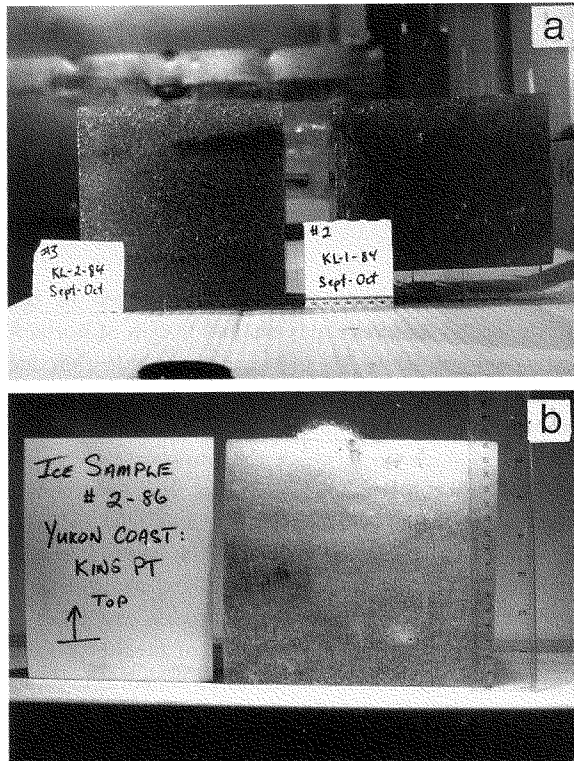 a
#3
KL-2-84
Sept-Oct
#2
KL-1-84
Sept-Oct
b
ICE SAMPLE
# 2-86
YUKON COAST:
KINGS PT
TOP